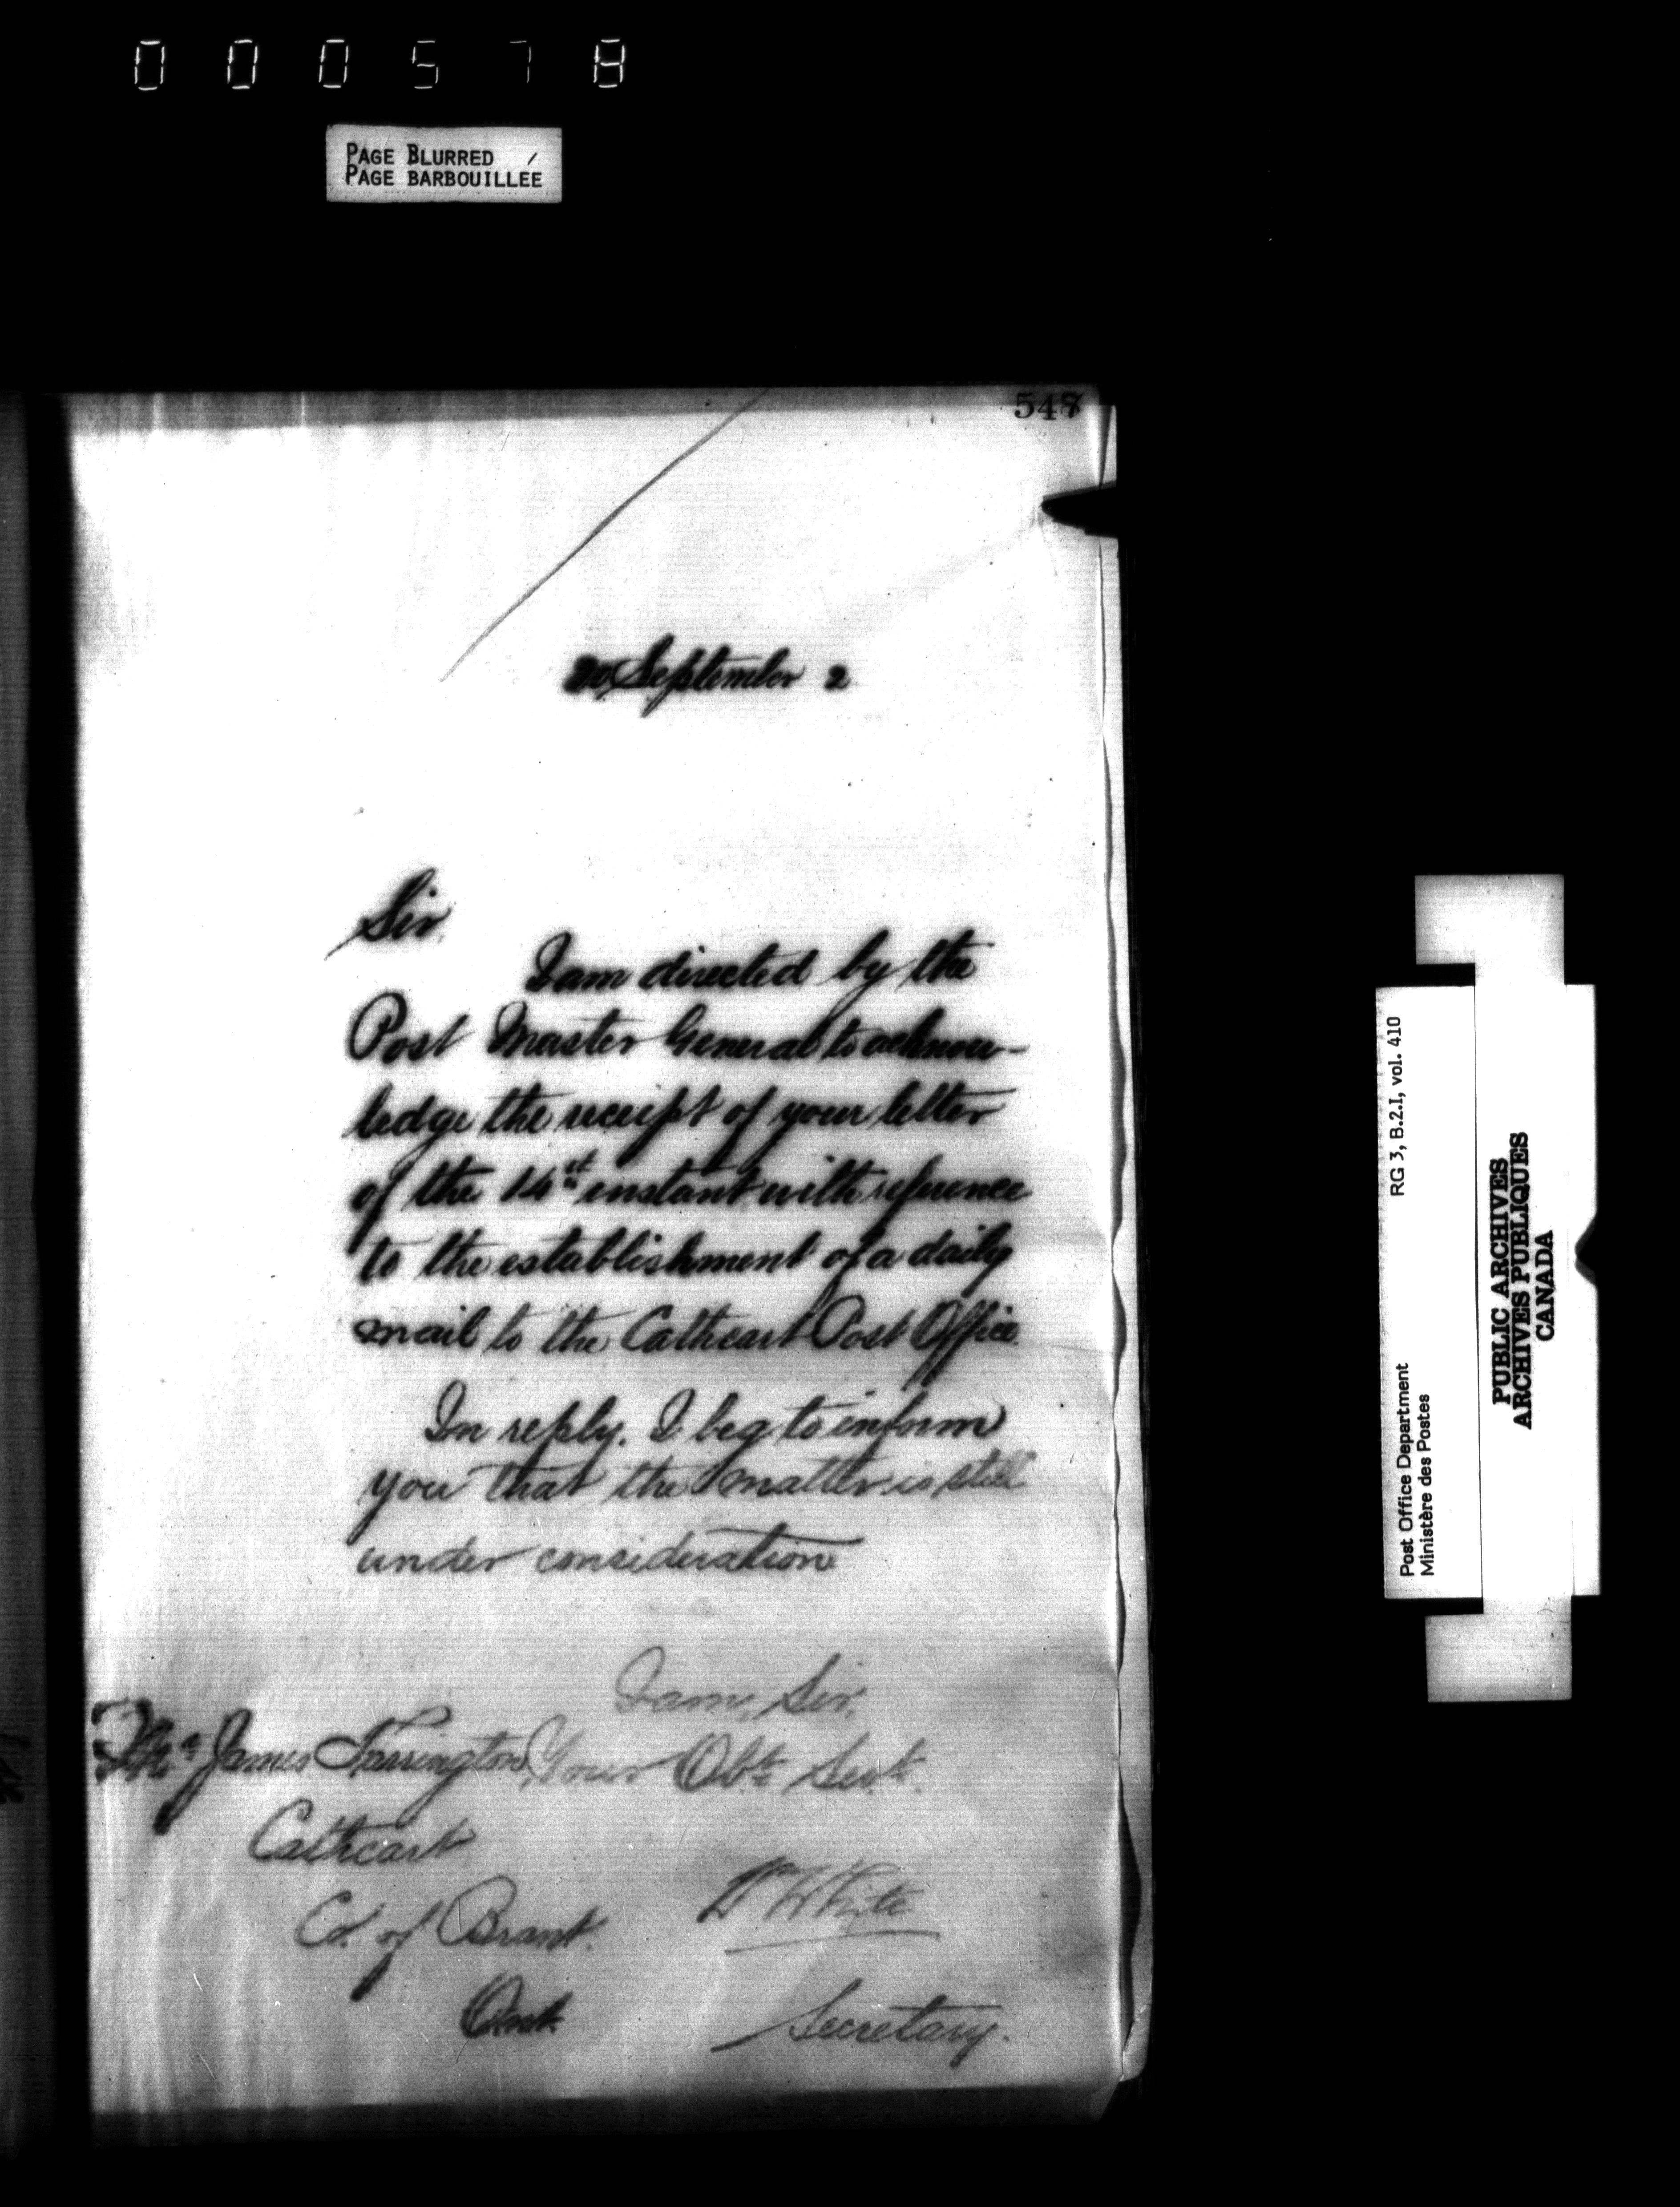 000578
PAGE BLURRED
PAGE BARBOUILLÉE
547
20 September 2
Sir,
I am directed by the
Post Master General to acknow-
ledge the receipt of your letter
of the 14th instant with reference
to the establishment of a daily
mail to the Cathcart Post Office.
In reply, I beg to inform
you that the matter is still
under consideration
I am, Sir,
James Farrington, Your Obt. Servt.
Cathcart
Co. of Brant.
W White
Ont.
Secretary.
Post Office Department
Ministère des Postes
RG 3, B.2.I, vol. 410
PUBLIC ARCHIVES
ARCHIVES PUBLIQUES
CANADA